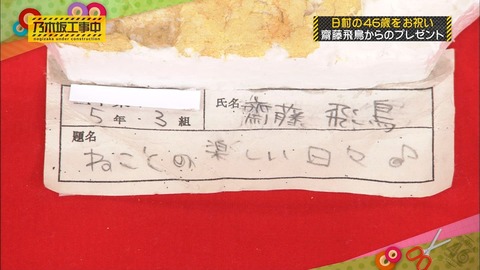 乃木坂工事中
nogizaka under construction
日村の46歳をお祝い
齋藤飛鳥からのプレゼント
5年・3組
氏名 齋藤 飛鳥
題名
ねことの楽しい日々♪